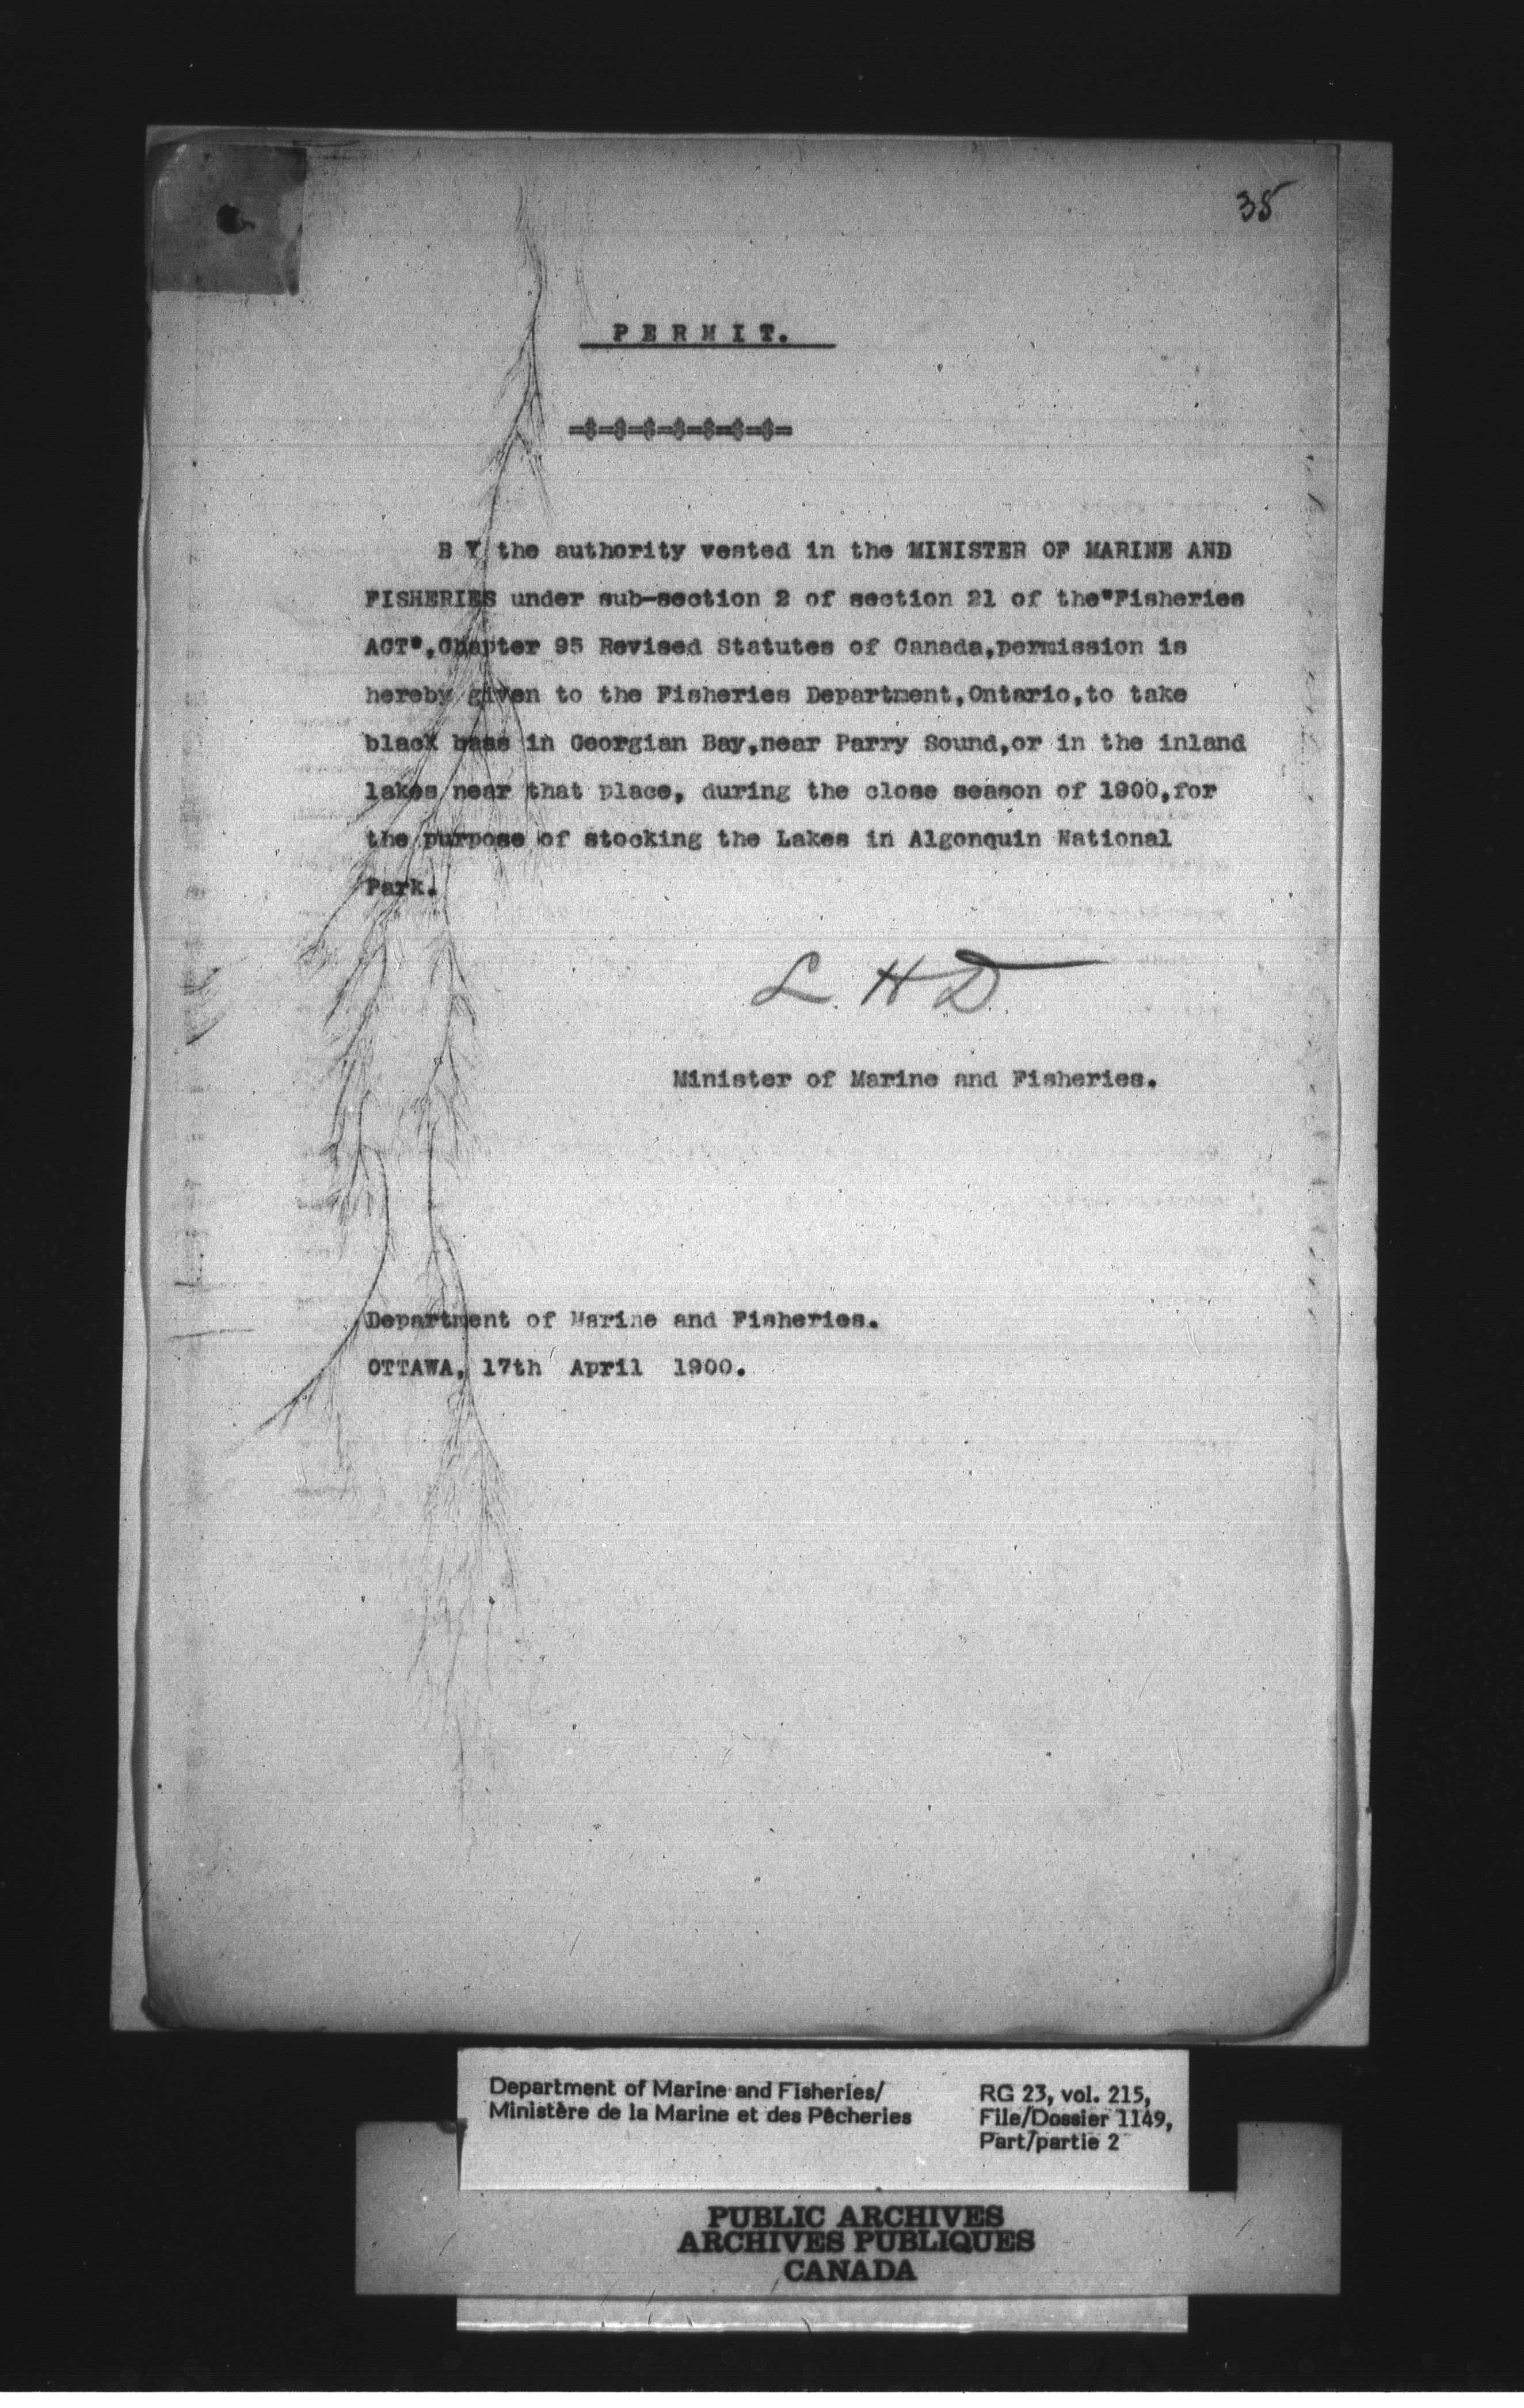 35
P E R M I T.
=$=$=$=$=$=$=$=
B Y the authority vested in the MINISTER OF MARINE AND
FISHERIES under sub-section 2 of section 21 of the"Fisheries
ACT",Chapter 95 Revised Statutes of Canada,permission is
hereby given to the Fisheries Department,Ontario,to take
black bass in Georgian Bay,near Parry Sound,or in the inland
lakes near that place, during the close season of 1900,for
the purpose of stocking the Lakes in Algonquin National
Park.
L. H D
Minister of Marine and Fisheries.
Department of Marine and Fisheries.
OTTAWA, 17th April 1900.
Department of Marine and Fisheries/
Ministère de la Marine et des Pêcheries
RG 23, vol. 215,
File/Dossier 1149,
Part/partie 2
PUBLIC ARCHIVES
ARCHIVES PUBLIQUES
CANADA